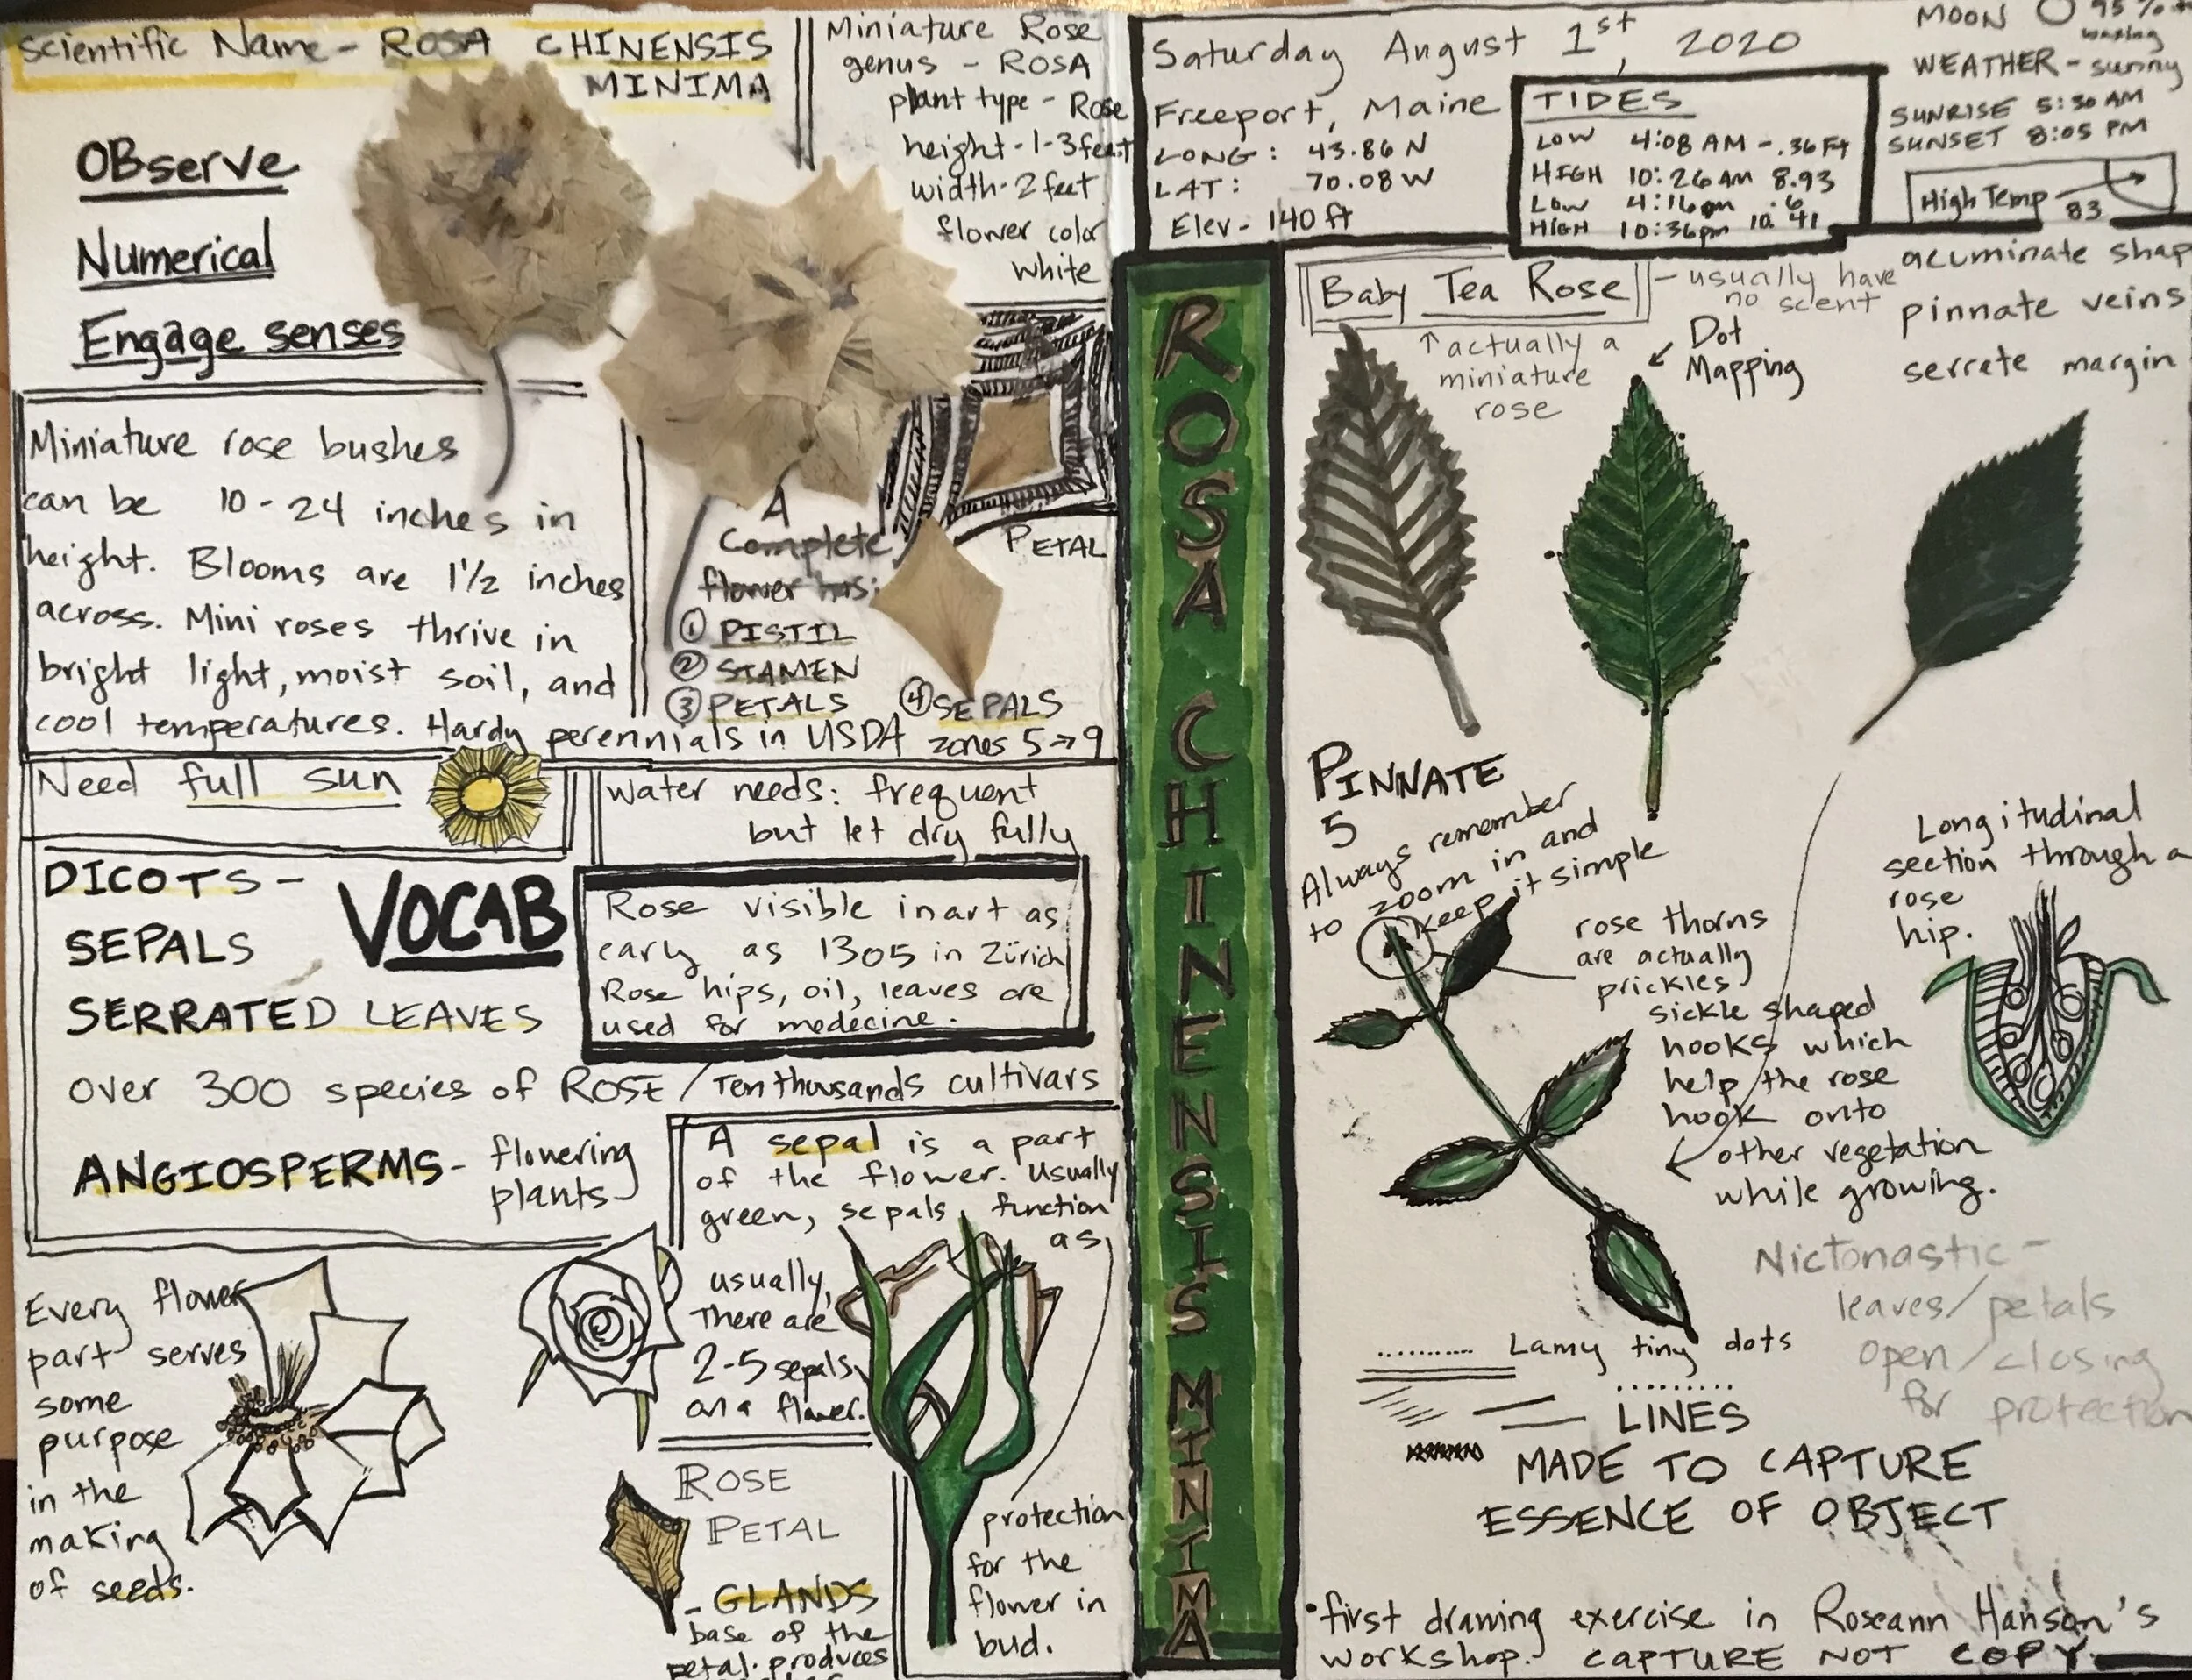 Scientific Name - ROSA CHINENSIS
MINIMA
OBserve
Numerical
Engage senses
Miniature Rose
genus - ROSA
plant type - Rose
height - 1-3 feet
width - 2 feet
flower color
white
Miniature rose bushes
can be 10-24 inches in
height. Blooms are 1 1/2 inches
across. Mini roses thrive in
bright light, moist soil, and
cool temperatures. Hardy perennials in USDA zones 5→9
A
Complete
flower has:
① PISTIL
② STAMEN
③ PETALS ④ SEPALS
PETAL
Need full sun
Water needs: frequent
but let dry fully
DICOTS -
VOCAB
SEPALS
SERRATED LEAVES
Rose visible in art as
early as 1305 in Zürich
Rose hips, oil, leaves are
used for medecine.
over 300 species of ROSE / Ten thousands cultivars
ANGIOSPERMS - flowering
plants
A sepal is a part
of the flower. Usually
green, sepals function
as
protection
for the
flower in
bud.
usually,
There are
2-5 sepals
on a flower.
Every flower
part serves
some
purpose
in the
making
of seeds.
ROSE
PETAL
- GLANDS
base of the
Petal. produces
ROSA CHINENSIS MINIMA
Saturday August 1st, 2020
Freeport, Maine
LONG: 43.86 N
LAT: 70.08 W
Elev - 140 ft
TIDES
LOW 4:08 AM -.36 Ft
HIGH 10:26 AM 8.93
LOW 4:16 pm .6
HIGH 10:36pm 10.41
MOON 95%
waxing
WEATHER - sunny
SUNRISE 5:30 AM
SUNSET 8:05 PM
High Temp 83
Baby Tea Rose - usually have
no scent
↑ actually a
miniature
rose
Dot
Mapping
acuminate shap
pinnate veins
serrate margin
PINNATE
5
Always remember
to zoom in and
keep it simple
rose thorns
are actually
prickles.
sickle shaped
hooks which
help the rose
hook onto
other vegetation
while growing.
Longitudinal
section through a
rose
hip.
Nictonastic -
leaves/petals
open/closing
for protection
Lamy tiny dots
LINES
MADE TO CAPTURE
ESSENCE OF OBJECT
• first drawing exercise in Roseann Hanson's
workshop. CAPTURE NOT COPY.